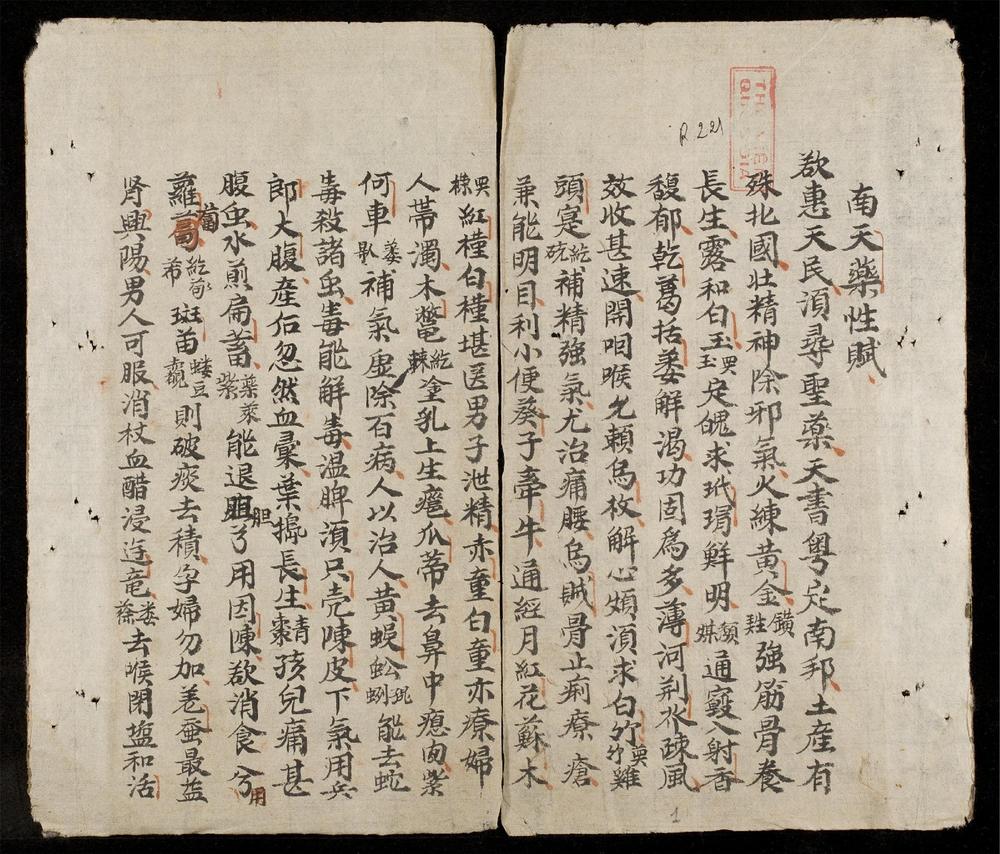 南天藥性賦
欲惠天民須尋聖藥天書粤定南邦土産有
殊北國壯精神除邪氣火練黄金鐄強筋骨養
長生露和白玉玉定魄求玳瑁鮮明通竅入射香
馥郁乾葛括蔞解渴功固爲多薄河荆水疎風
效收甚速開咽喉允頼烏枚解心煩須求白竹雞
頭寔補精強氣尤治痛腰烏賊骨止痢療瘡
兼能明目利小便葵子牽牛通經月紅花蘇木
紅橦白橦堪医男子泄精赤童白童亦療婦
人帶濁木鱉塗乳上生瘡爪蒂去鼻中瘜肉紫
何車補氣虚除百病人以治人黄蜈蚣能去蛇
毒殺諸虫毒能解毒温脾須只壳陳皮下氣用兵
郎大腹産后忽然血暈葉搗長生青孩児痛甚
腹虫水煎扁蓄能退胆胆丂用因陳欲消食兮用
蘿蔔斑苗則破痰去積孕婦勿加巻蚕最益
腎興陽男人可服消杖血醋浸去喉閉塩和活
R 221
1